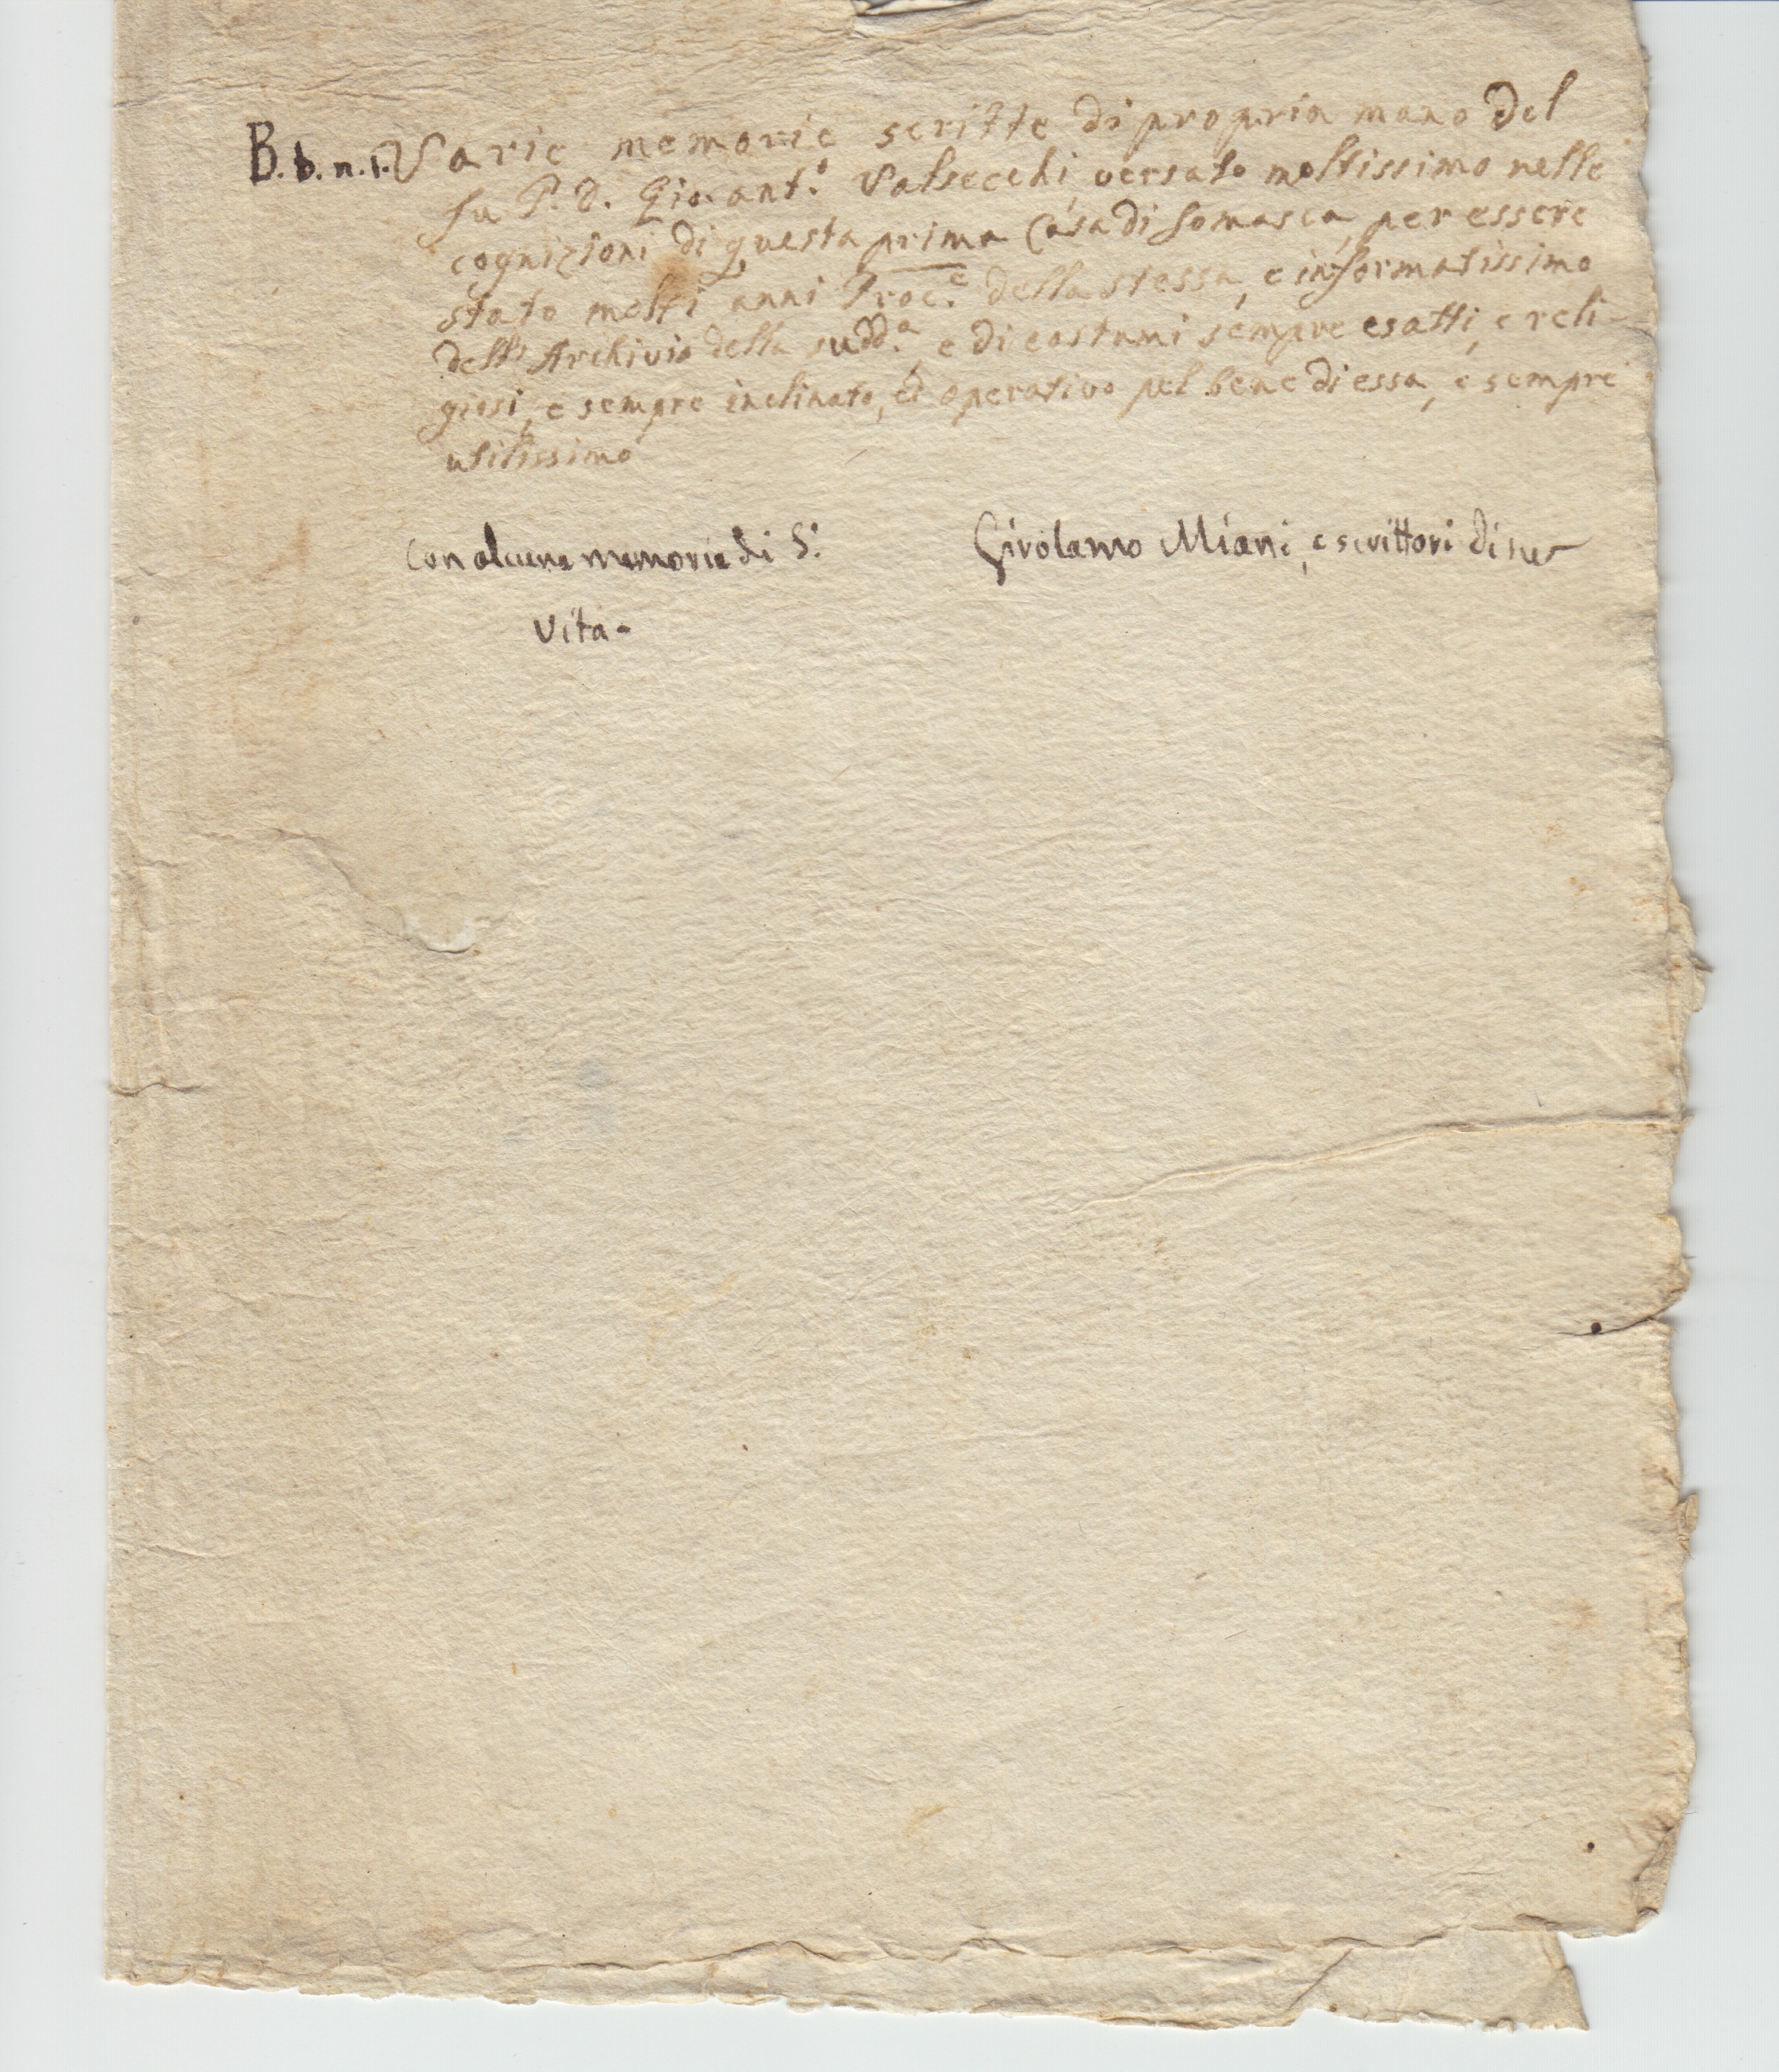 B. b. n. 1. Varie memorie scritte di propria mano del
fu P. D. Gio: ant.o Valsecchi, versato moltissimo nelle
cognizioni di questa prima Casa di Somasca, per essere
stato molti anni Proc.e della stessa, e informatissimo
dell' Archivio della sudd.a, e di costumi sempre esatti, e reli-
giosi, e sempre inclinato, ed operativo pel bene di essa, e sempre
utilissimo
Con alcune memorie di S. Girolamo Miani, e scrittori di sua
Vita.